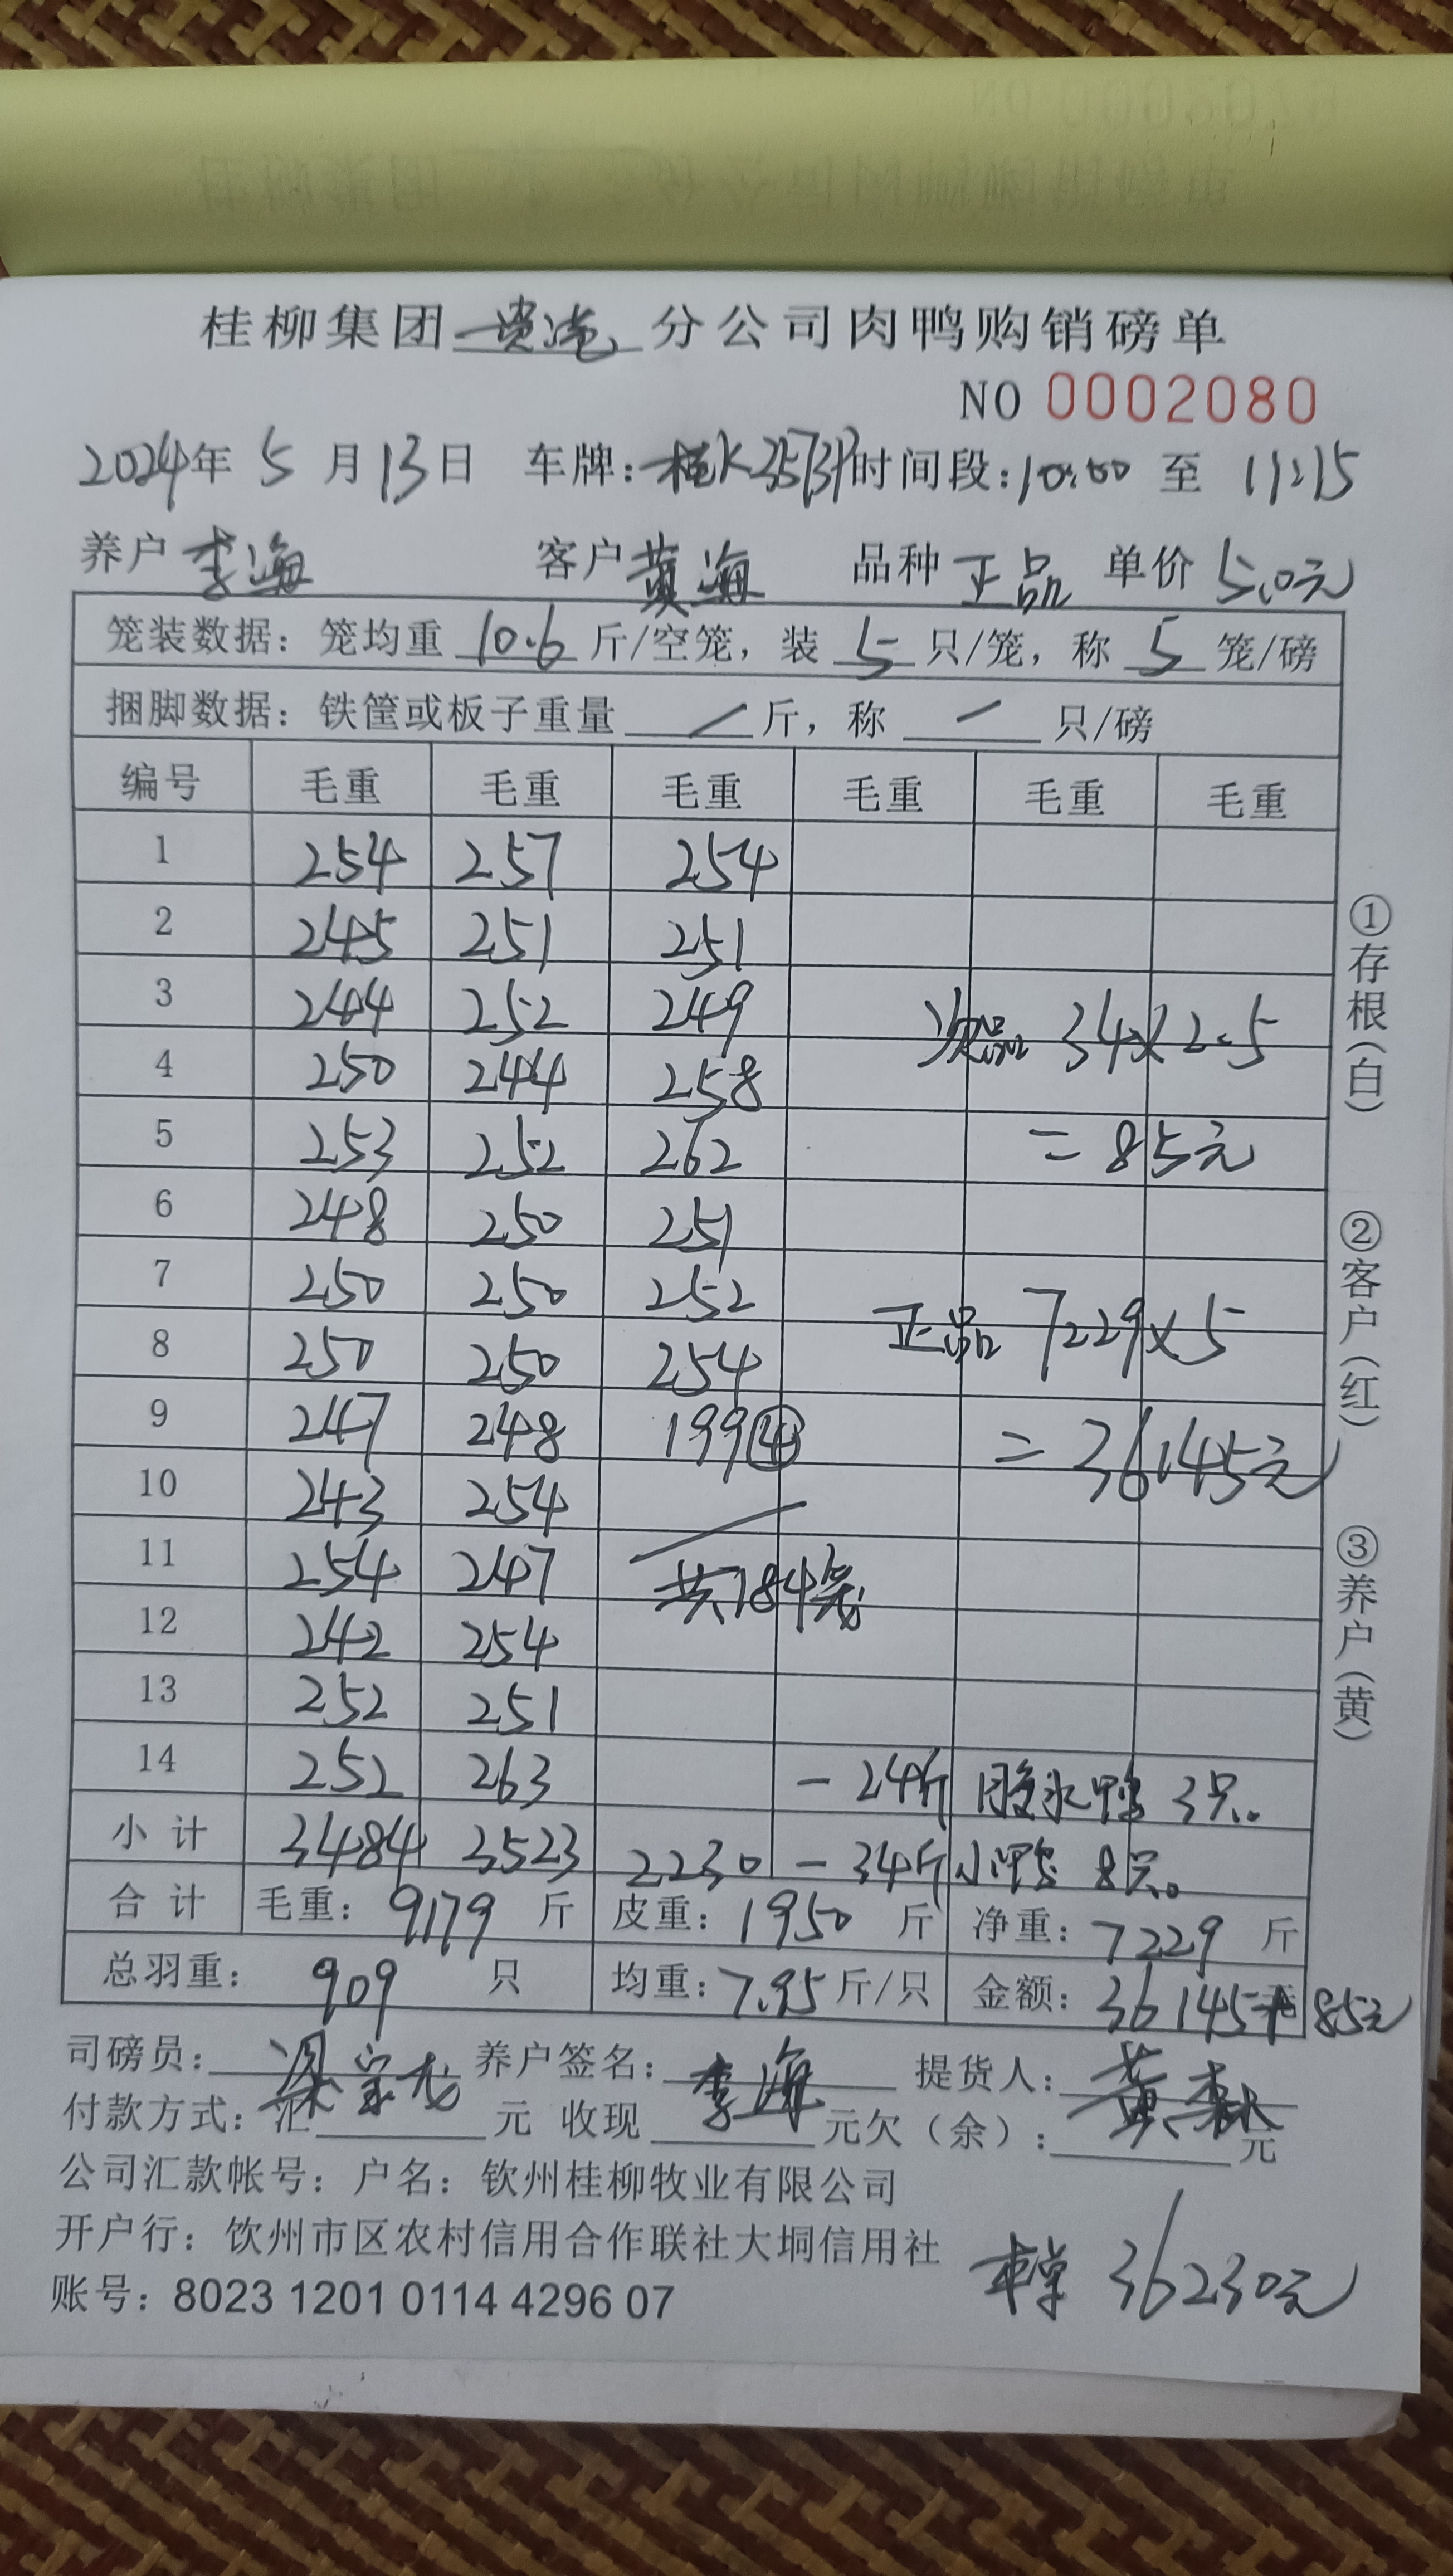 桂柳集团贵港分公司肉鸭购销磅单
NO 0002080
2024年 5 月 13日 车牌: 时间段:10:00 至 11:15
养户 李海 客户 黄海 品种 正品 单价 5.0元
笼装数据: 笼均重 10.6 斤/空笼, 装 5 只/笼, 称 5 笼/磅
捆脚数据: 铁筐或板子重量 / 斤, 称 / 只/磅
编号 毛重 毛重 毛重 毛重 毛重 毛重
1 254 257 254
2 245 251 251
3 244 252 249
次品 34×2.5
4 250 244 258
5 253 252 262
=85元
6 248 250 251
7 250 250 252
正品 7229×5
8 250 250 254
9 247 248 199④
=36145元
10 243 254
11 254 247
共184笼
12 242 254
13 252 251
14 252 263 -24斤 水鸭 3只。
小计 3484 3523 2230 -34斤 小鸭 8只。
合计 毛重: 9179 斤 皮重: 1950 斤 净重: 7229 斤
总羽重: 909 只 均重: 7.95 斤/只 金额: 36145元+85元
司磅员: 养户签名: 李海 提货人:
付款方式: 汇 元 收现 元欠(余): 元
公司汇款帐号: 户名: 钦州桂柳牧业有限公司
开户行: 饮州市区农村信用合作联社大垌信用社
账号: 8023 1201 0114 4296 07
36230元
①存根(白)
②客户(红)
③养户(黄)